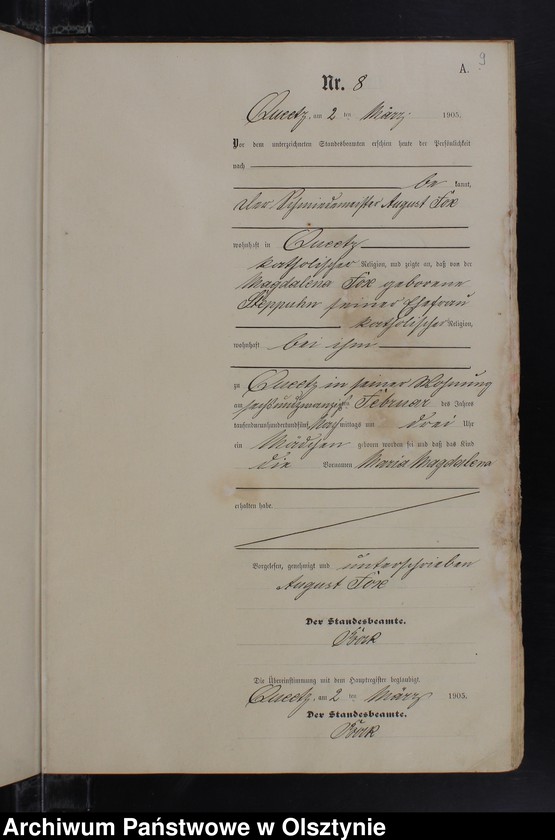 9
A.
Nr. 8
Queetz, am 2 ten März 1905.
Vor dem unterzeichneten Standesbeamten erschien heute der Persönlichkeit
nach
be kannt,
der Schmiedemeister August Fox
wohnhaft in Queetz
katholischer Religion, und zeigte an, daß von der
Magdalena Fox geborene
Steppuhn seiner Ehefrau
katholischer Religion,
wohnhaft bei ihm
zu Queetz in seiner Wohnung
am sechsundzwanzigsten Februar des Jahres
tausendneunhundertfünf Nachmittags um drei Uhr
ein Mädchen geboren worden sei und daß das Kind
die Vornamen Maria Magdalena
erhalten habe.
Vorgelesen, genehmigt und unterschrieben
August Fox
Der Standesbeamte.
Die Übereinstimmung mit dem Hauptregister beglaubigt
Queetz, am 2 ten März 1905.
Der Standesbeamte.
Archiwum Państwowe w Olsztynie